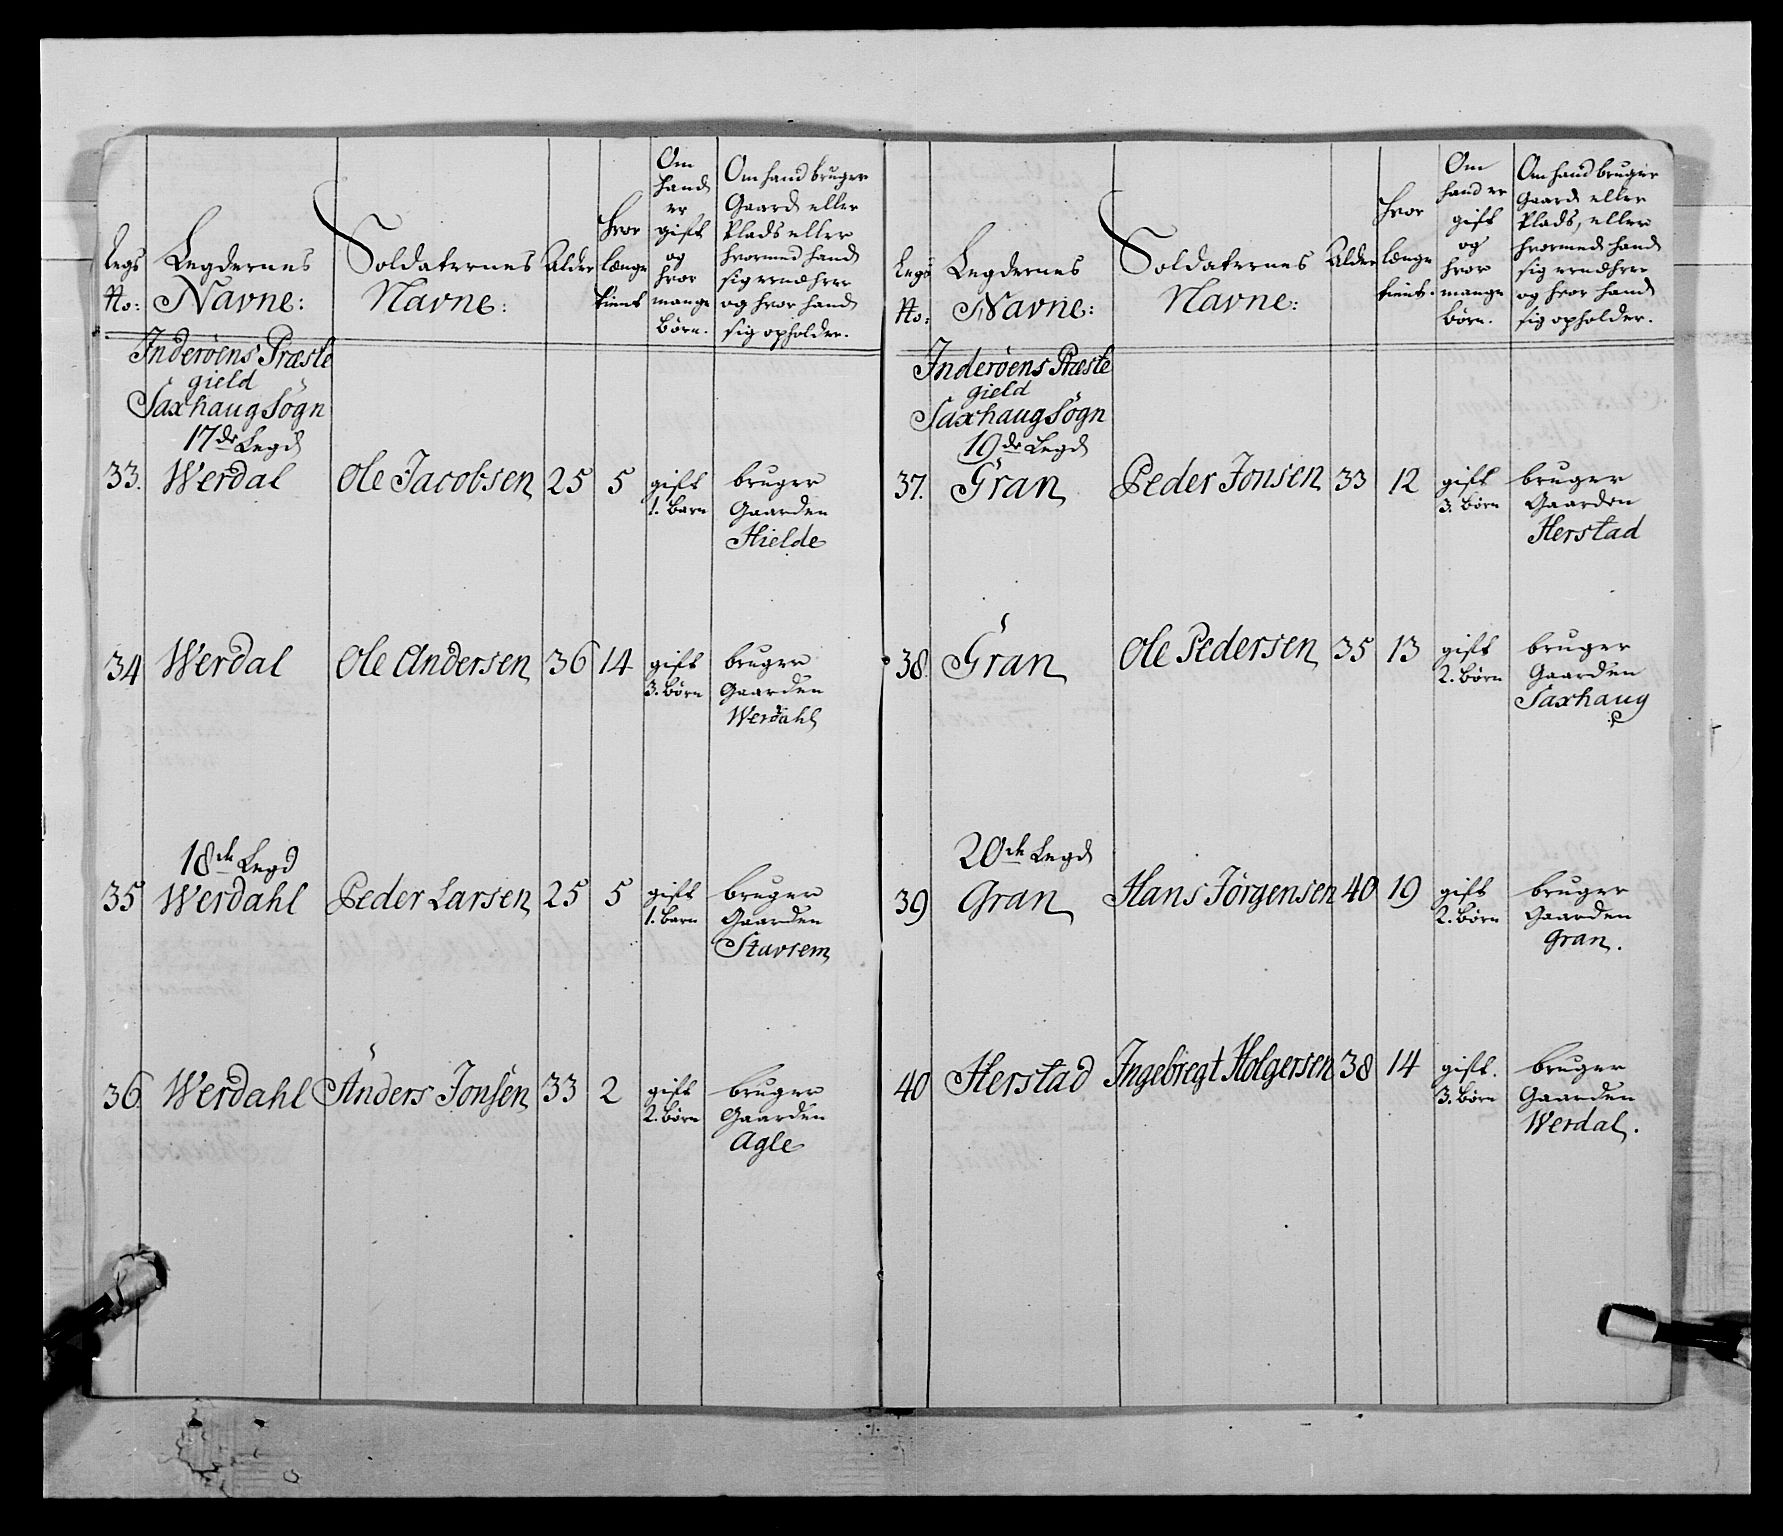 Legs
No:
Legdernes
Navne:
Soldaternes
Navne:
Alder
hvor
længe
tient
Om
hand
er
gift
og
hvor
mange
børn.
Om hand bruger
Gaard eller
Plads eller
hvormed hand
sig ernæhrer
og hvor hand
sig opholder.
Inderöens Præste
gield
Saxhaug Sogn
17de Legd
33. Werdal Ole Jacobsen 25 5 gift bruger
1. barn Gaarden
Hielde
34 Werdal Ole Andersen 36 14 gift bruger
3. børn Gaarden
Werdahl
18de Legd
35 Werdahl Peder Larsen 25 5 gift bruger
1. barn Gaarden
Stavrem
36 Werdahl Anders Jonsen 33 2 gift bruger
2. børn Gaarden
Agle
Legs
No:
Legdernes
Navne:
Soldaternes
Navne:
Alder
hvor
længe
tient.
Om
hand er
gift
og
hvor
mange
børn.
Om hand bruger
Gaard eller
Plads, eller
hvormed hand
sig ernæhrer
og hvor hand
sig opholder.
Inderöens Præste
gield
Saxhaug Sogn
19de Legd
37. Gran Peder Jonsen 33 12 gift bruger
3. børn Gaarden
Herstad
38. Gran Ole Pedersen 35 13 gift bruger
2. børn Gaarden
Saxhaug
20de Legd
39 Gran Hans Jörgensen 40 19 gift bruger
2. børn Gaarden
Gran.
40 Herstad Ingebregt Holgersen 38 14 gift. bruger
3. børn Gaarden
Werdal.